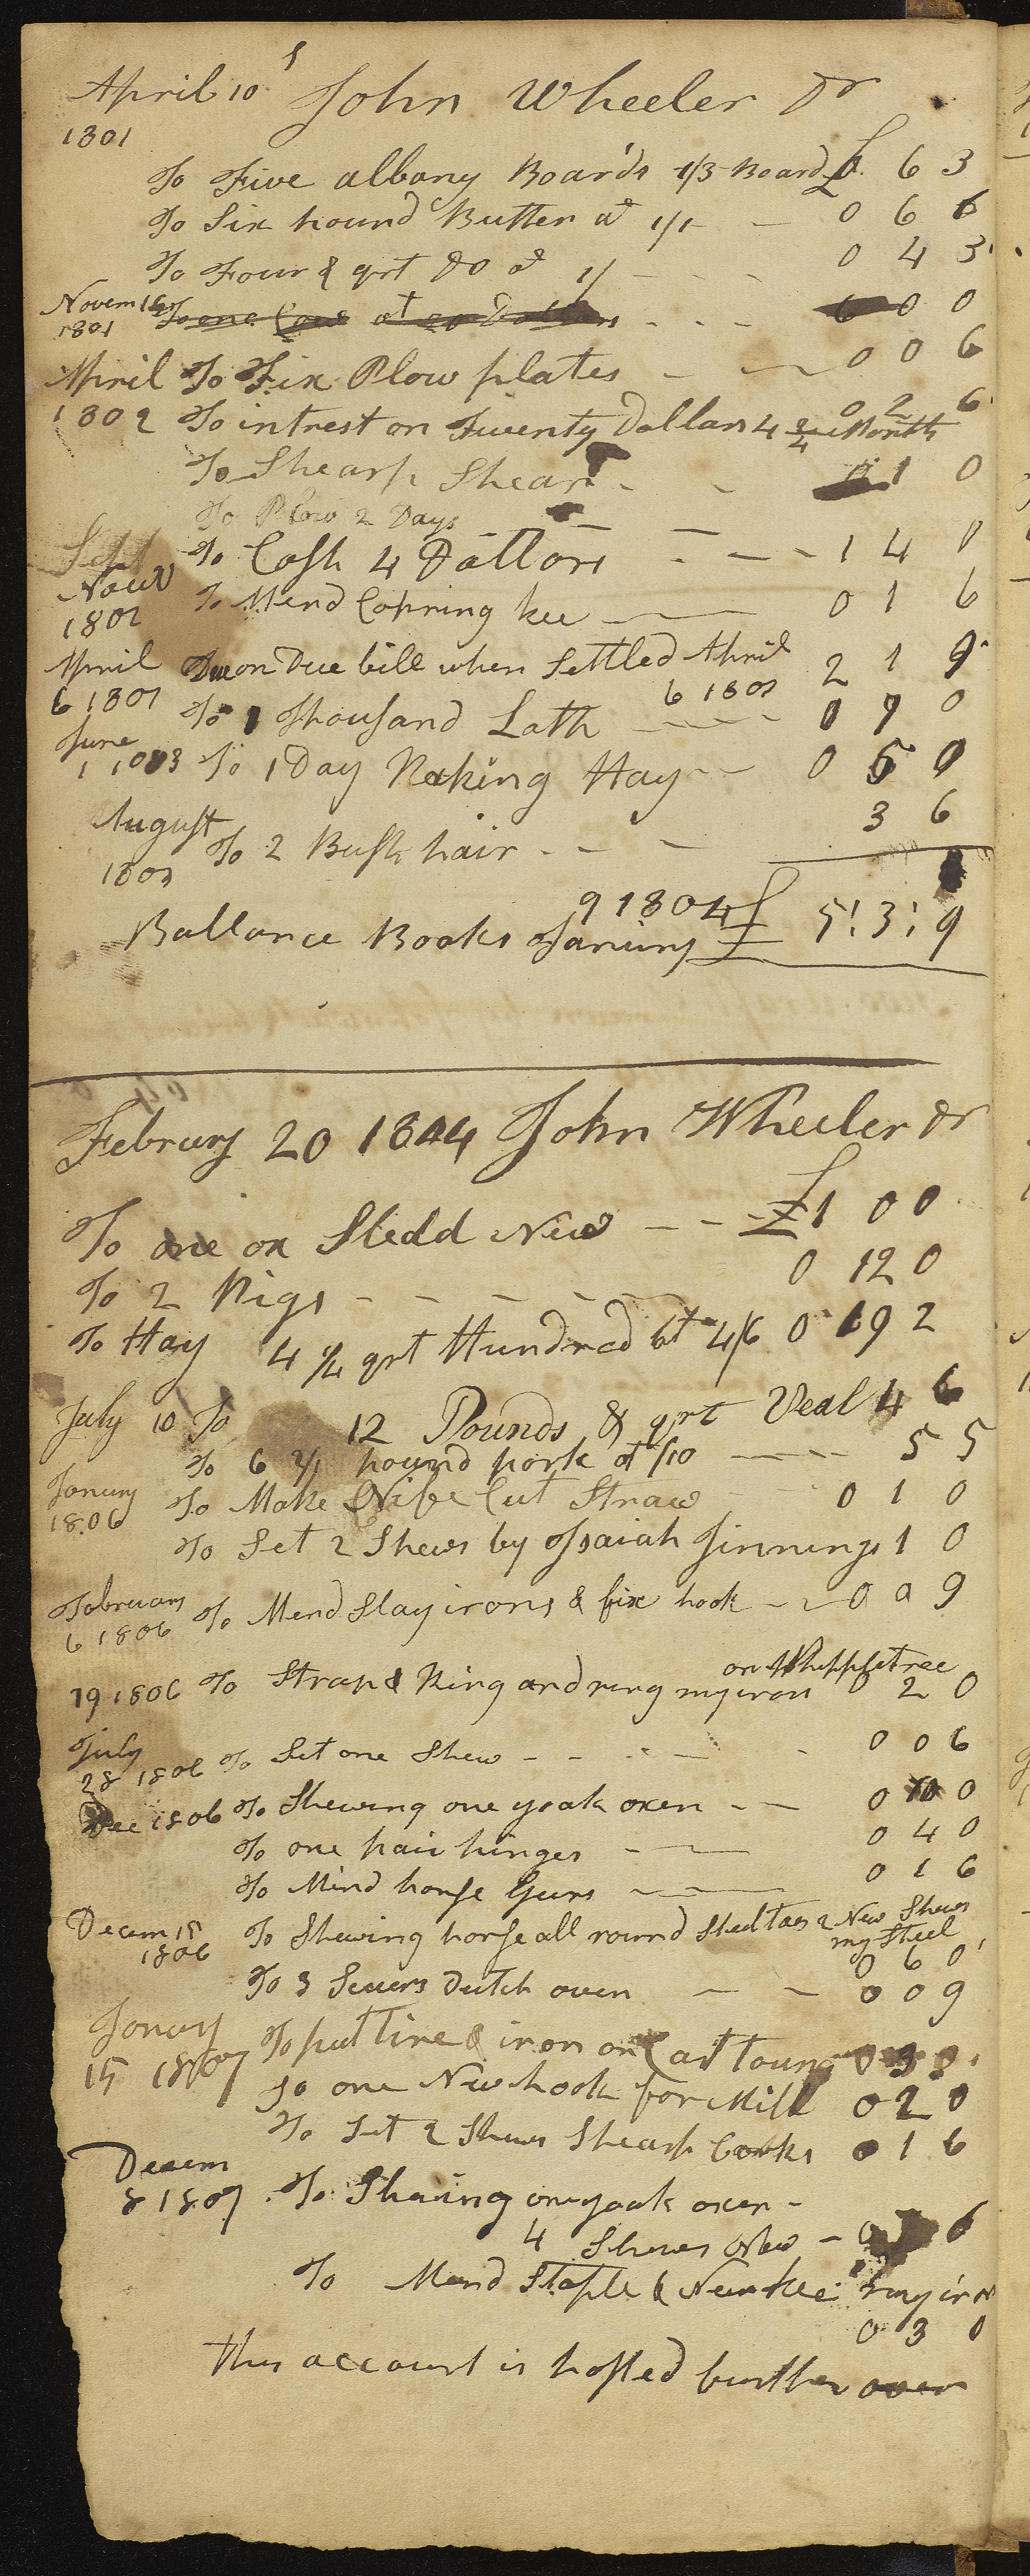 April 10 John Wheeler Dr
1801
To Five albany Boards 1/3 Board £0 6 3
To Six pound Butter at 1/1 - 0 6 6
To Four & qrt Do at 1/ - - - 0 4 3
Novem 16 To one Cow at 20 Dollars - - - 6 0 0
1801
April To Fix Plow plates - - 0 0 6
1802 To intrest on Twenty Dollars 4 3/4 Month 0 2 6
To Sharp Shear - - 0 1 0
To Plow 2 Days
Sept To Cash 4 Dollars - - - 1 4 0
Novr
1802 To Mend Kee - 0 1 6
April Due on Due bill when Settled April 2 1 9
6 1803 6 1803
To 1 Thousand Lath - - - 0 9 0
June
1 1803 To 1 Day Raking Hay - - 0 5 0
August
1803 To 2 Bush hair - - - 3 6
Ballance Books Janury 9 1804 £ 5:3:9
Februry 20 1804 John Wheeler Dr
To one ox Sledd New - - £1 0 0
To 2 Pigs - - - - - 0 12 0
To Hay 4 1/4 qrt Hundred at 4/6 0 19 2
July 10 To 12 Pounds & qrt Veal 4 6
To 6 pound pork at /10 - - - 5 5
Janury
1806 To Make Nife Cut Straw - - 0 1 0
To Set 2 Shews by Isaiah Jinnings 1 0
February
6 1806 To Mend Slay irons & fix hook - - 0 0 9
on Whippletree
19 1806 To Strap & Ring and rung my iron 0 2 0
July
28 1806 To Set one Shew - - - - 0 0 6
Dec 1806 To Shewing one yoak oxen - - 0 10 0
To one pair hinges - - 0 4 0
To Mend horse Gurs - 0 1 6
Decem 18
1806 To Shewing horse all round Steel Toes 2 New Shews
my Steel
0 6 0
To 3 Dutch oven - - 0 0 9
Jonury
15 1807 To put Tire & iron on Cart Toung 0 3 0
To one New hook for Mill 0 2 0
To Set 2 Shews Sharp Corks 0 1 6
Decem
8 1807 To Shoeing one yoak oxen -
4 Shews New - 6
To Mend Staple & New Kee my iron
0 3 0
this account is posted further over